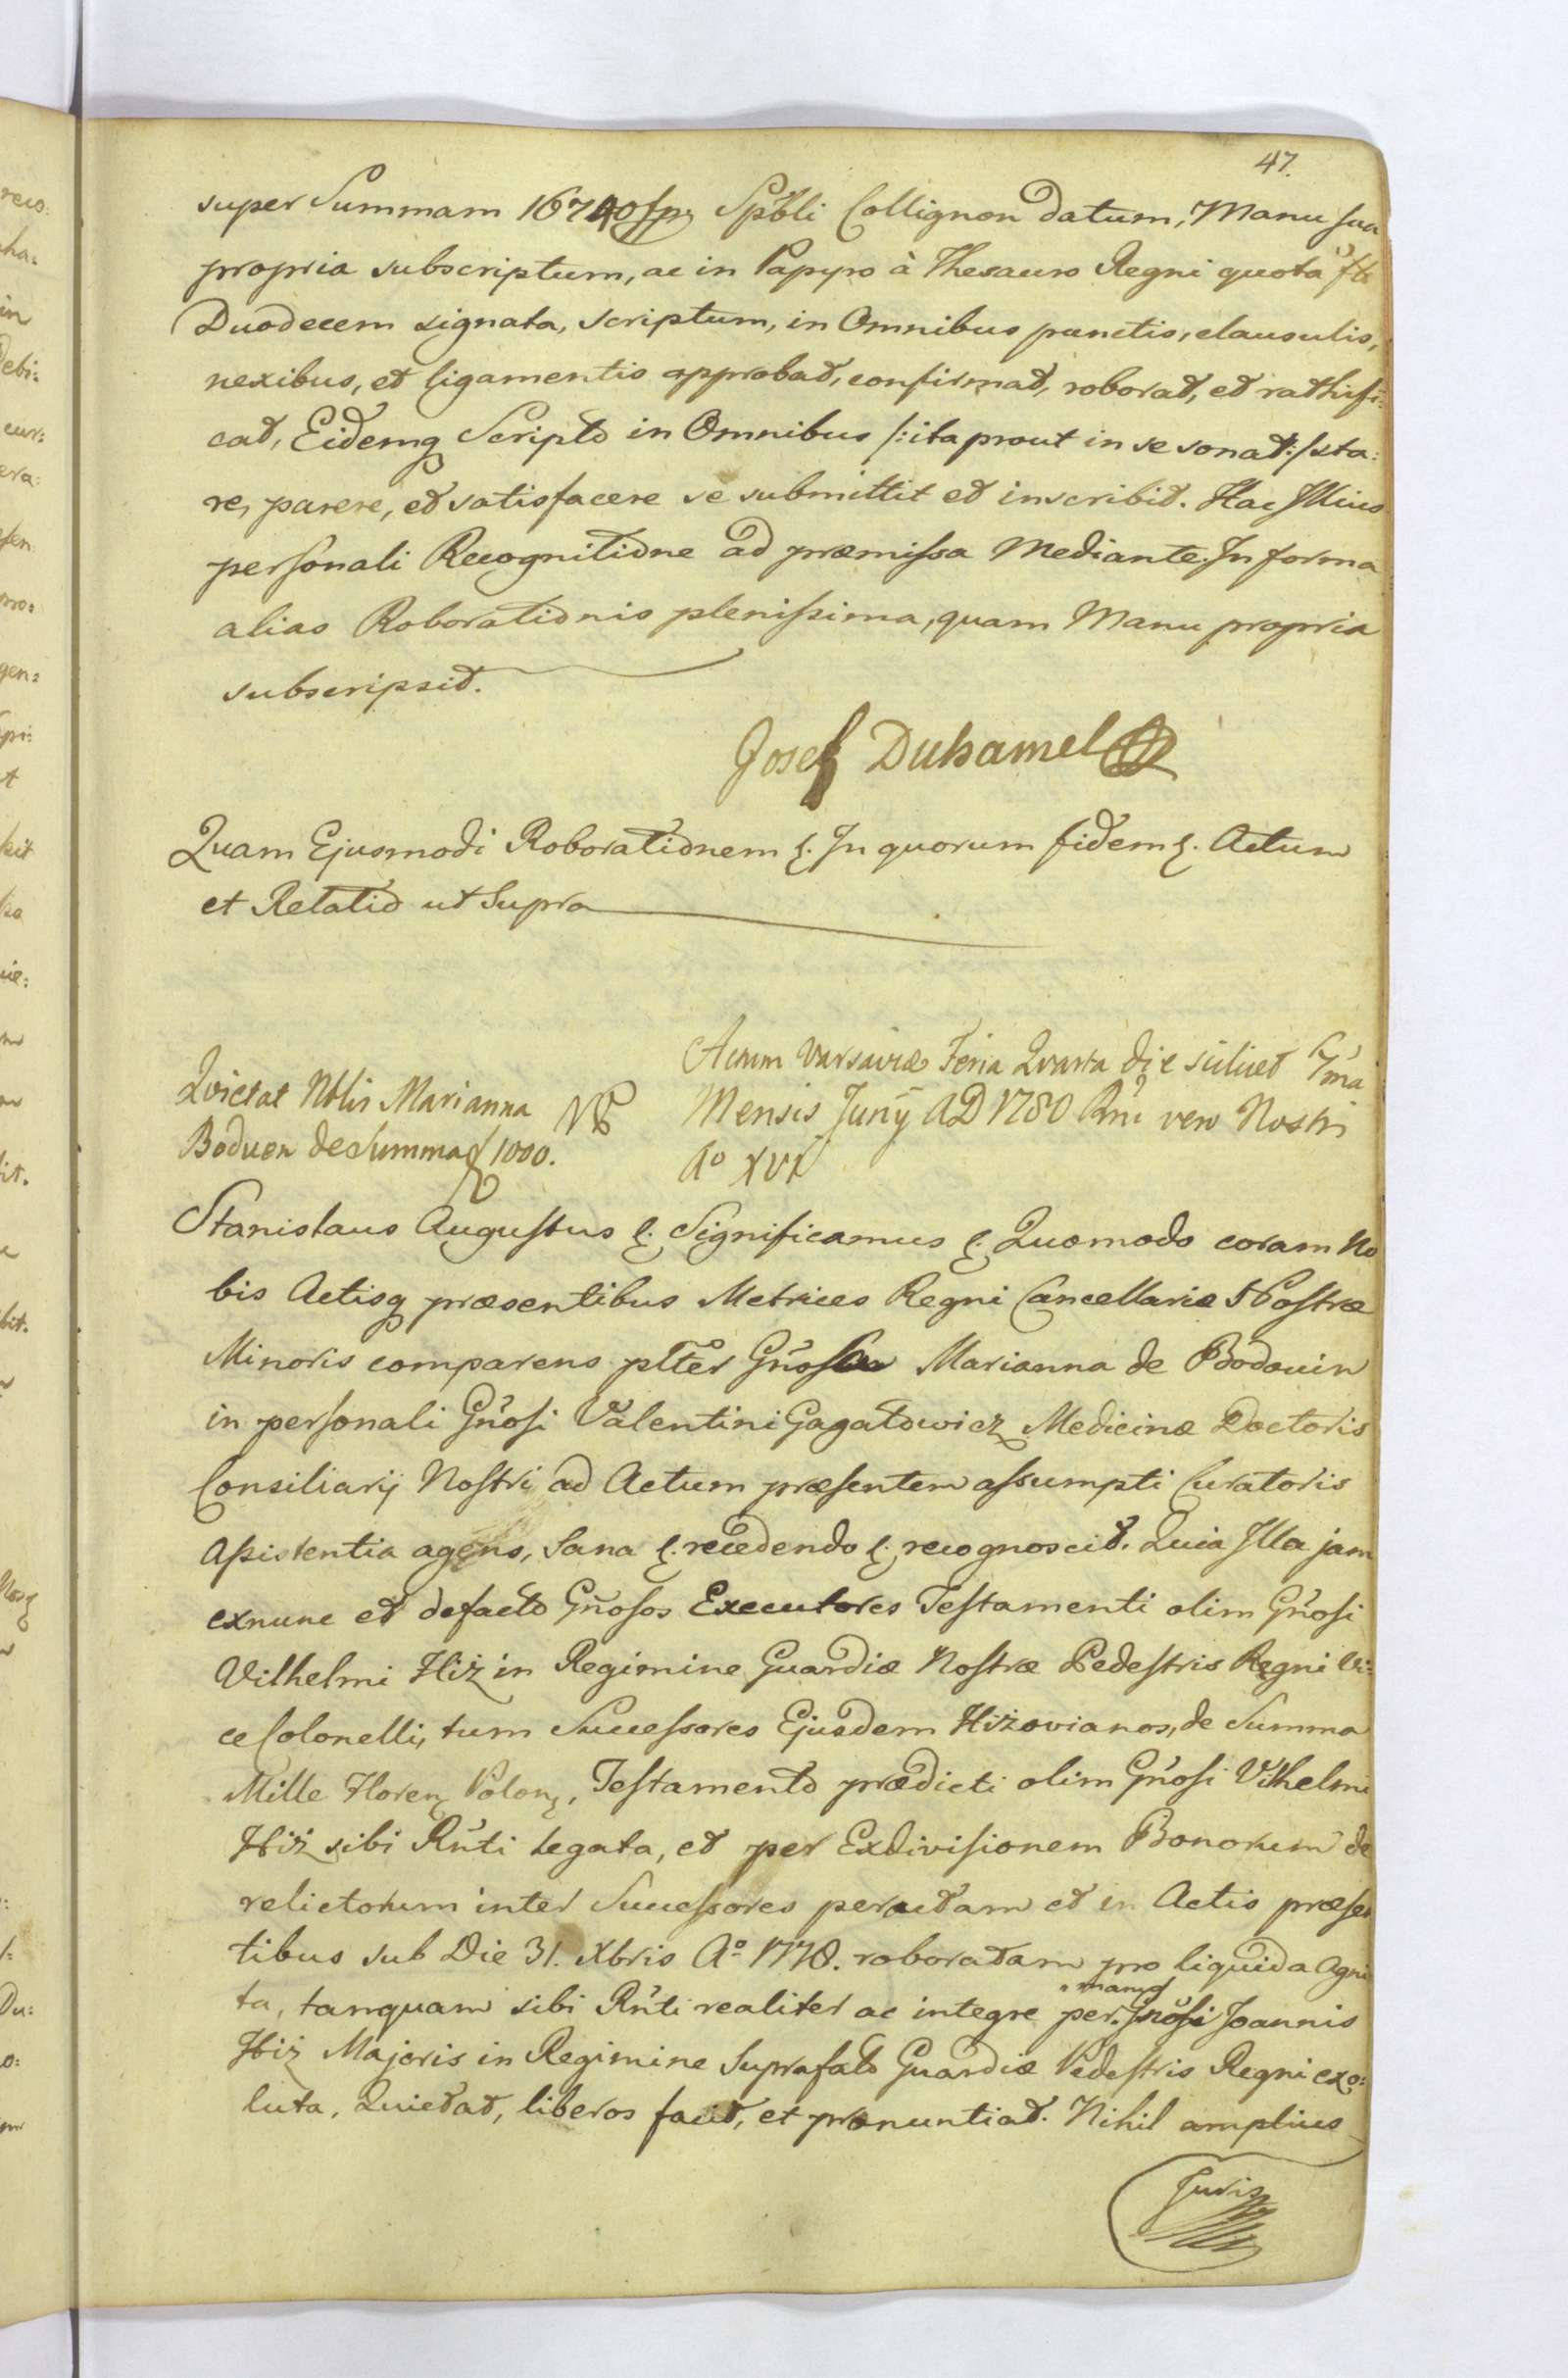 47.
super Summam 16740 fpr Spbli Collignon datum, Manu sua
propria subscriptum, ac in Papyro à Thesauro Regni quota fti
Duodecem signata, scriptum, in Omnibus punctis, clausulis,
nexibus, et ligamentis approbat, confirmat, roborat, et rathifi:
cat, Eidemq Scripto in Omnibus /: ita prout in se sonat :/ sta:
re, parere, et satisfacere se submittit et inscribit. Hac Illius
personali Recognitione ad præmissa Mediante. In forma
alias Roborationis plenissima, quam Manu propria
subscripsit.
Josef Duhamel
Quam Ejusmodi Roborationem &. In quorum fidem &. Actum
et Relatio ut Supra
Actum Varsaviæ Feria Quarta die scilicet 7ma
Mensis Junÿ AD 1780 Rni vero Nostri
Ao XVI
Qvietat Nblis Marianna
Boduen de Summa f 1000.
Stanislaus Augustus &. Significamus &. Quomodo coram No
bis Actisq præsentibus Metrices Regni Cancellariæ Nostræ
Minoris comparens plter Gnosa Marianna de Bodouin
in personali Gnosi Valentini Gagatowicz Medicinæ Doctoris
Consiliarij Nostri ad Actum præsentem assumpti Curatoris
Assistentia agens, Sana &. recedendo &. recognoscit. Quia Illa jam
exnunc et defacto Gnosos Executores Testamenti olim Gnosi
Vilhelmi Hiż in Regimine Guardiæ Nostræ Pedestris Regni Vi:
ce Colonelli, tum Successores Ejusdem Hiżovianos, de Summa
Mille Floren Polon, Testamento prædicti olim Gnosi Vilhelmi
Hiż sibi Rnti legata, et per Exdivisionem Bonorum de
relictorum inter Successores peractam et in Actis præsen
tibus sub Die 31. Xbris Ao 1778. roboratam pro liquida agni
ta, tanquam sibi Rnti realiter ac integre per manq Gnosi Joannis
Hiż Majoris in Regimine Suprafato Guardiæ Pedestris Regni exo:
luta, Quietat, liberos facit, et pronuntiat. Nihil amplius
Juris